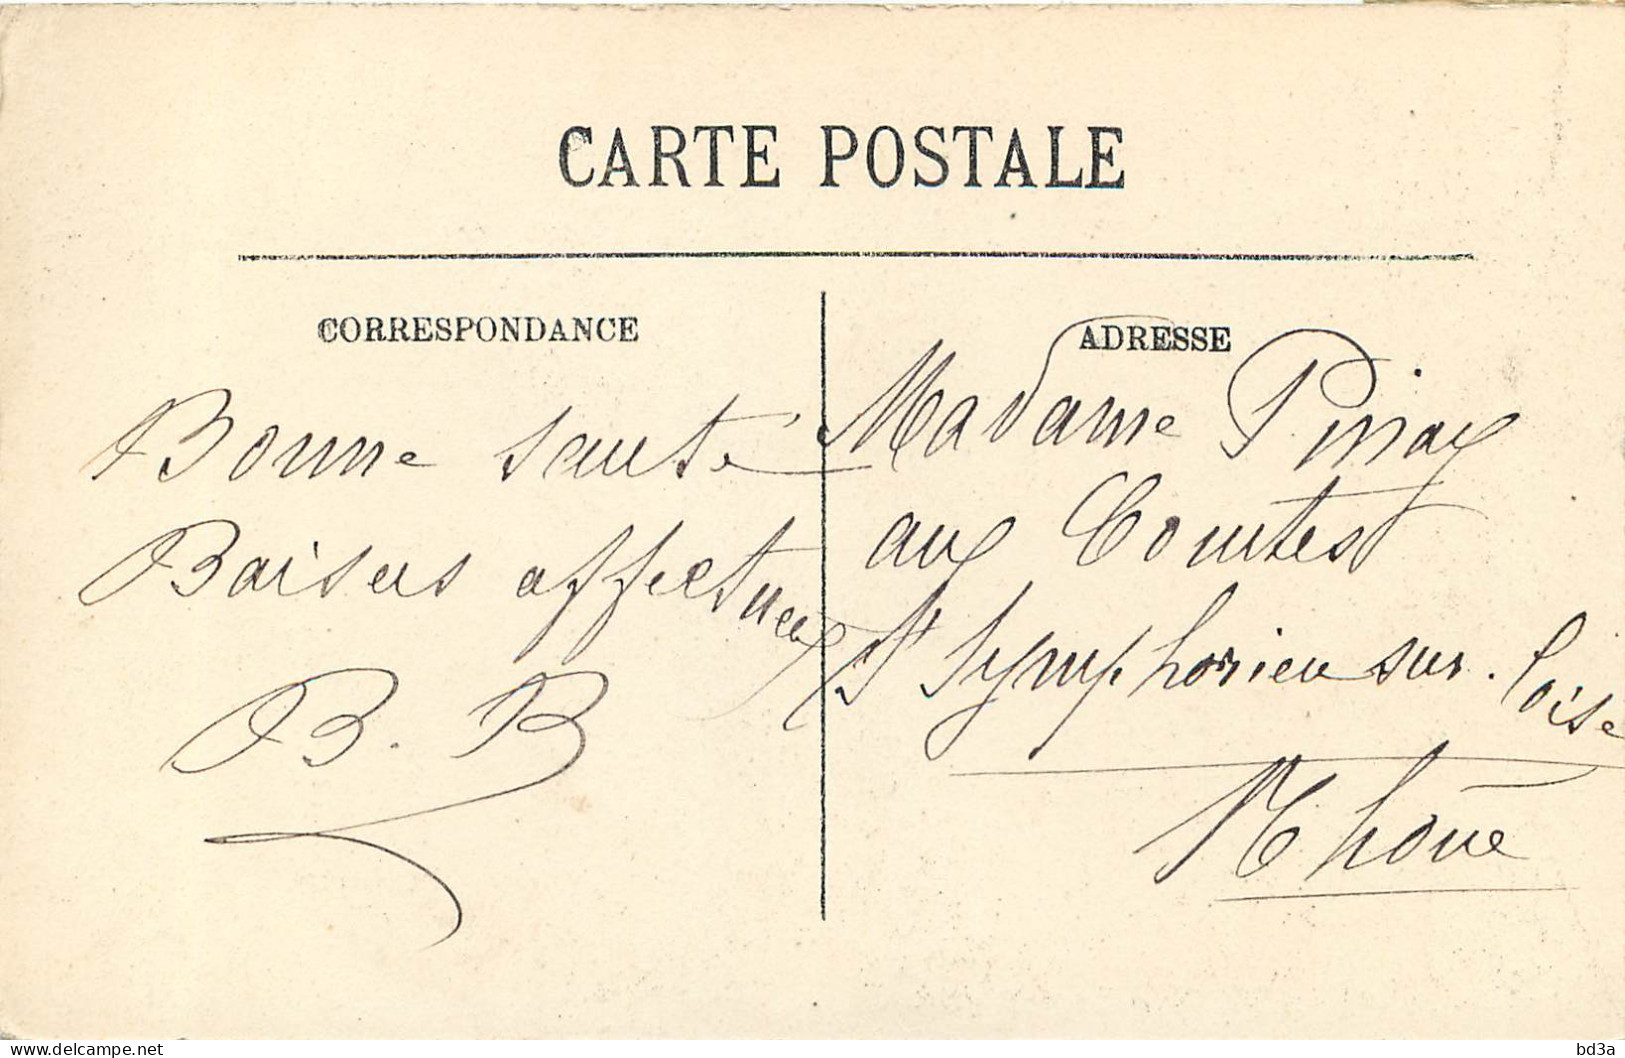 CARTE POSTALE
CORRESPONDANCE
Bonne santé
Baisers affectueux
B. B
ADRESSE
Madame Pinay
aux Comtes
St Symphorien sur. Coise
Rhône
delcampe.net
bd3a